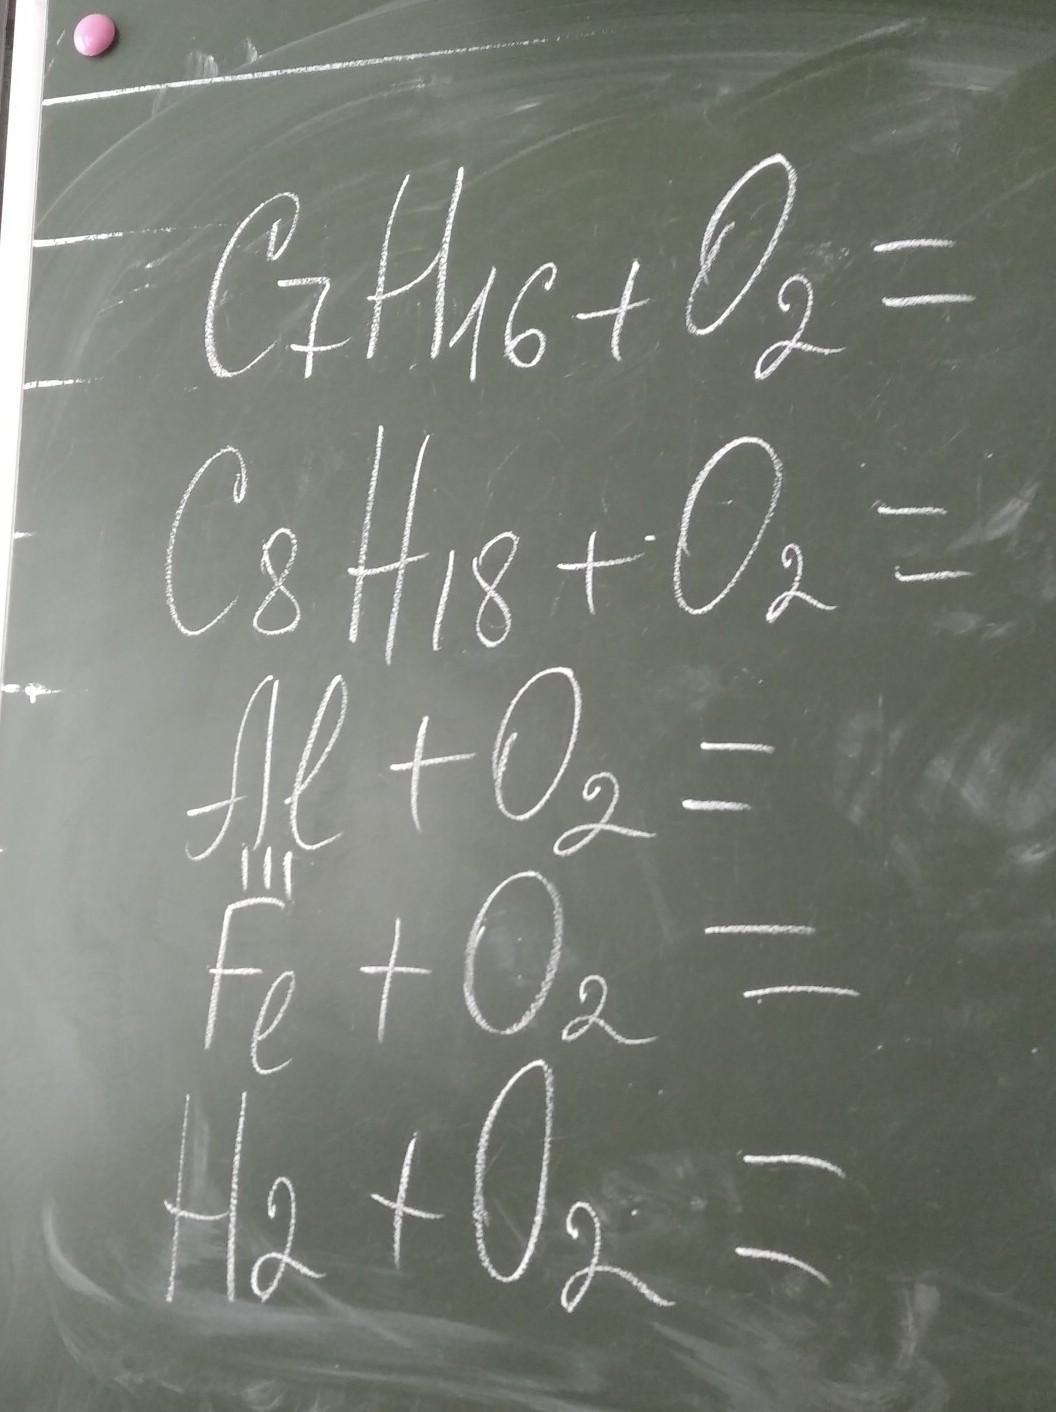 C₇H₁₆ + O₂ =
C₈H₁₈ + O₂ =
Al + O₂ =
III
Fe + O₂ =
H₂ + O₂ =